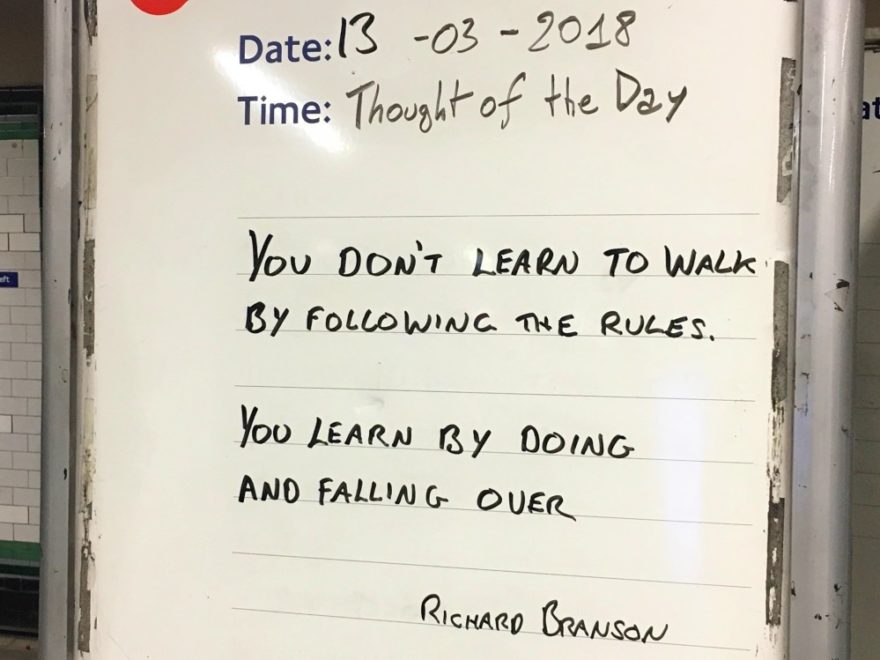 Date: 13 -03 - 2018
Time: Thought of the Day
YOU DON'T LEARN TO WALK
BY FOLLOWING THE RULES.
YOU LEARN BY DOING
AND FALLING OVER
RICHARD BRANSON